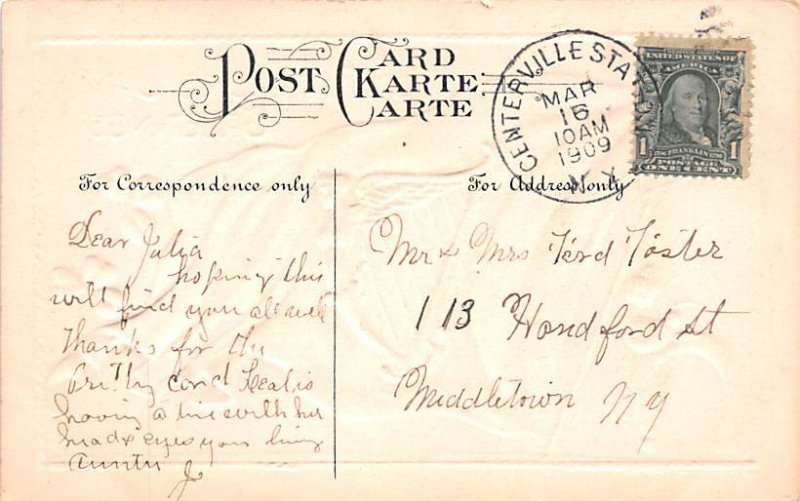 POST CARD
KARTE
CARTE
CENTERVILLE STA
MAR
16
10AM
1909
N.Y.
UNITED STATES OF
AMERICA
1 FRANKLIN 1
POSTAGE
ONE CENT
For Correspondence only
For Address only
Dear Julia
hoping this
will find you all well
thanks for the
card
having a time with her
eyes your loving
Aunty J
Mr & Mrs Ferd Foster
113 Handford St
Middletown NY